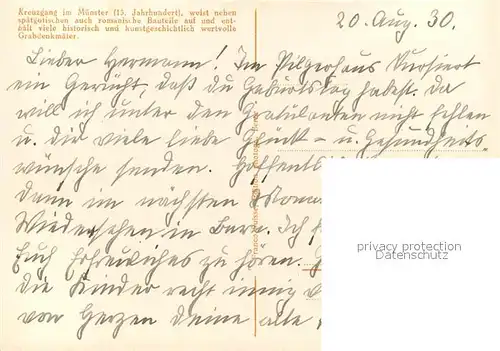 Kreuzgang im Münster (15. Jahrhundert), weist neben
spätgotischen auch romanische Bauteile auf und ent-
hält viele historisch und kunstgeschichtlich wertvolle
Grabdenkmäler.
20. Aug. 30.
Lieber Hermann! Im Pilgerhaus kursiert
ein Gerücht, daß du Geburtstag habest. Da
will ich unter den Gratulanten nicht fehlen
u. dir viele liebe Glück- u. Gesundheits-
wünsche senden. Hoffentlich
dann im nächsten Monat
Wiedersehen in Bern. Ich
Euch Erfreuliches zu hören.
die Kinder recht innig
von Herzen deine alte
privacy protection
Datenschutz